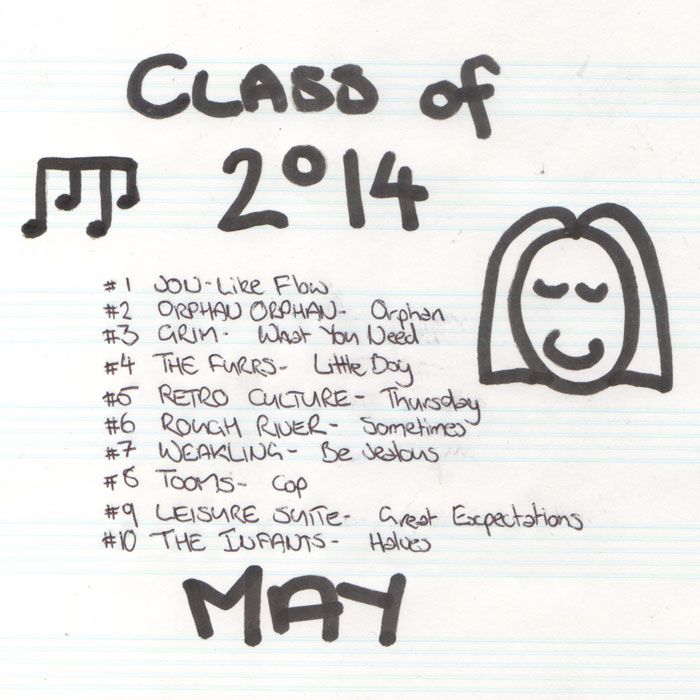 CLASS of
2014
#1 JOU-Like Flow
#2 ORPHAN ORPHAN- Orphan
#3 GRIM- What You Need
#4 THE FURRS- Little Dog
#5 RETRO CULTURE- Thursday
#6 ROUGH RIVER- Sometimes
#7 WEAKLING- Be Jealous
#8 TOOMS- Cop
#9 LEISURE SUITE- Great Expectations
#10 THE INFANTS- Halves
MAY